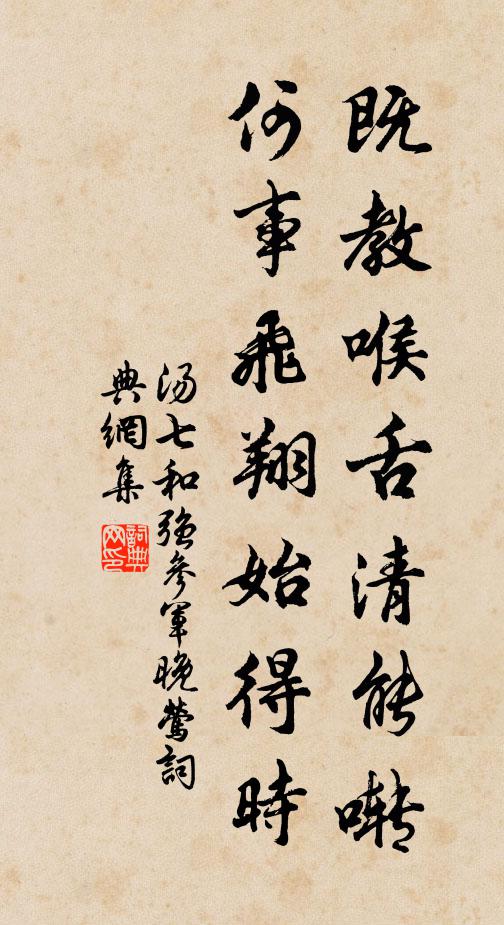 既教喉舌清能啭
何事飛翔始得時
湯七和强參軍晚鶯詞
典網集
詞典
网印